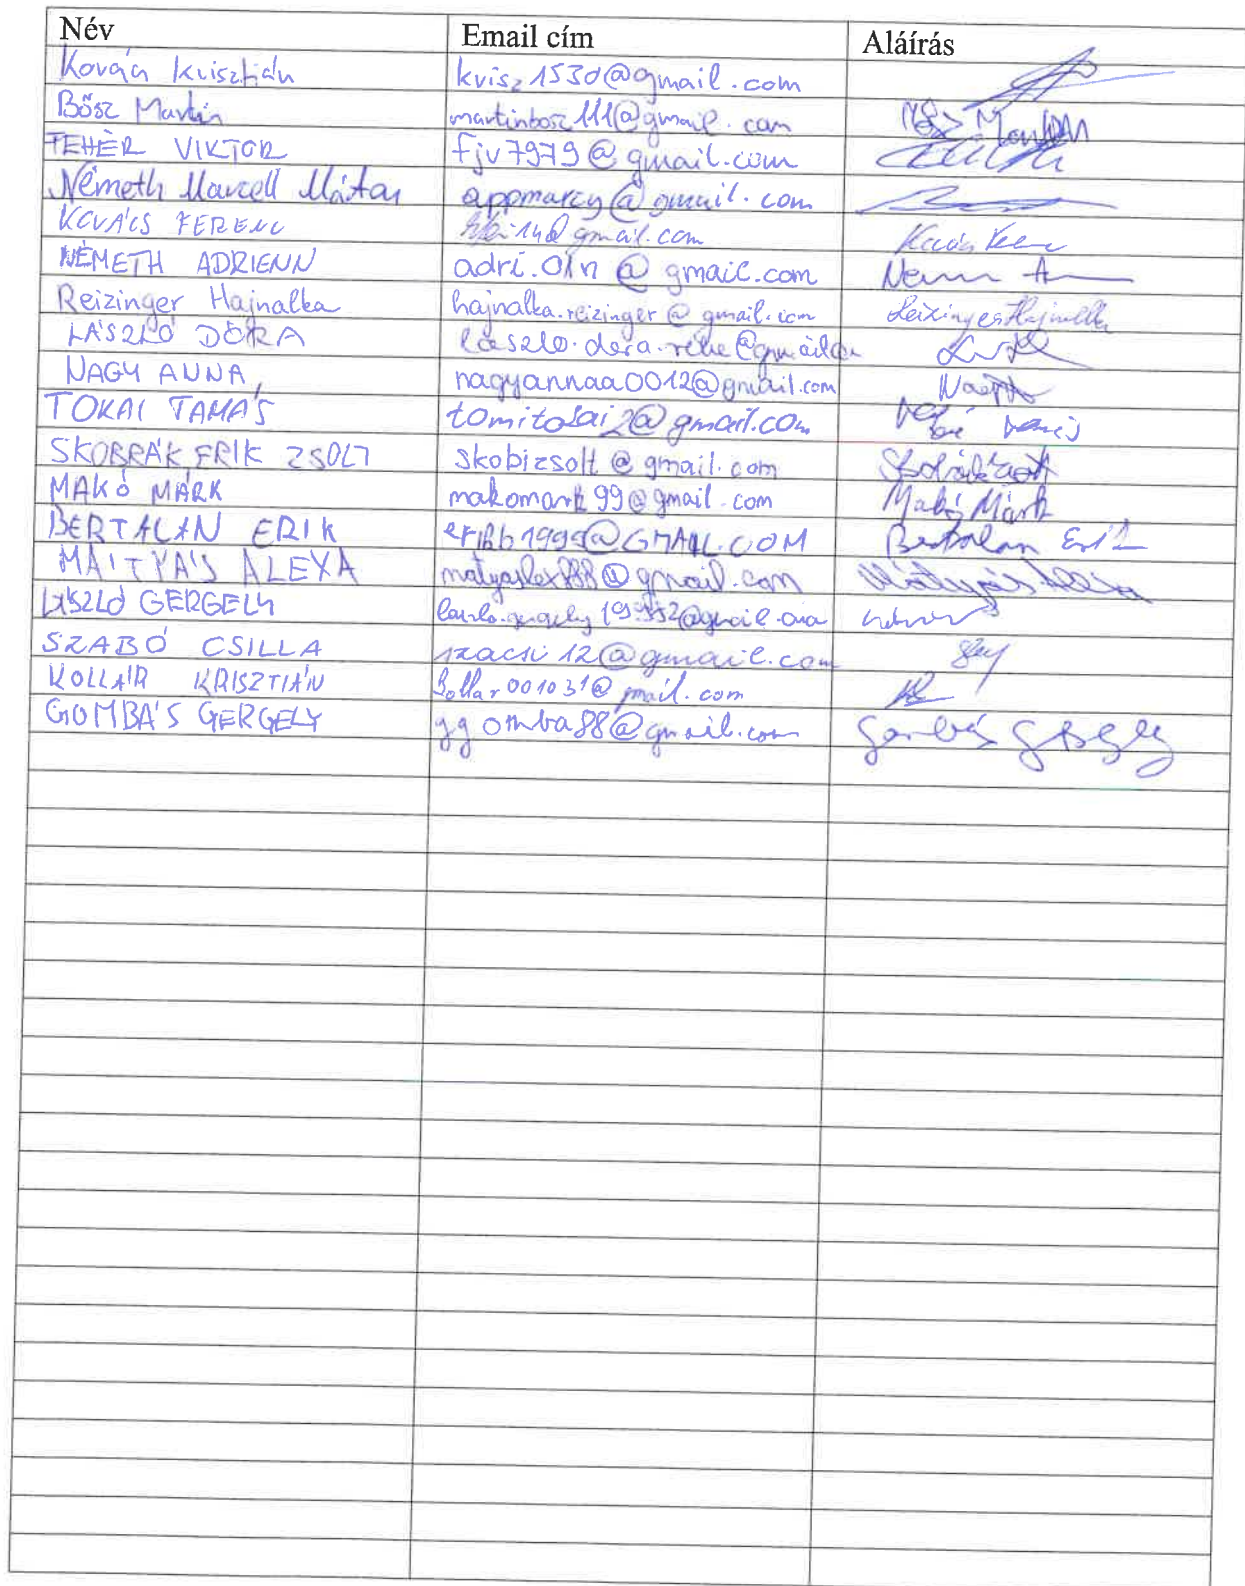 Név Email cím Aláírás
Kovács Krisztián krisz1530@gmail.com
Bősz Martin martinbosz111@gmail.com
FEHÉR VIKTOR fjv7979@gmail.com
Németh Marcell Mátas appmarcy@gmail.com
KOVÁCS FERENC @gmail.com Kovács Ferenc
NÉMETH ADRIENN adri.01n@gmail.com
Reizinger Hajnalka hajnalka.reizinger@gmail.com Reizinger Hajnalka
LÁSZLÓ DÓRA
NAGY ANNA nagyannaa0012@gmail.com
TOKAI TAMÁS tomitokai2@gmail.com
SKOBRÁK ERIK ZSOLT skobizsolt@gmail.com
MAKÓ MÁRK makomark99@gmail.com Makó Márk
BERTALAN ERIK erikb1999@GMAIL.COM Bertalan Erik
MÁTYÁS ALEXA matyaslex888@gmail.com Mátyás Alexa
LÁSZLÓ GERGELY
SZABÓ CSILLA szacsi12@gmail.com
KOLLÁR KRISZTIÁN kollar001031@gmail.com
GOMBÁS GERGELY ggomba88@gmail.com Gombás Gergely